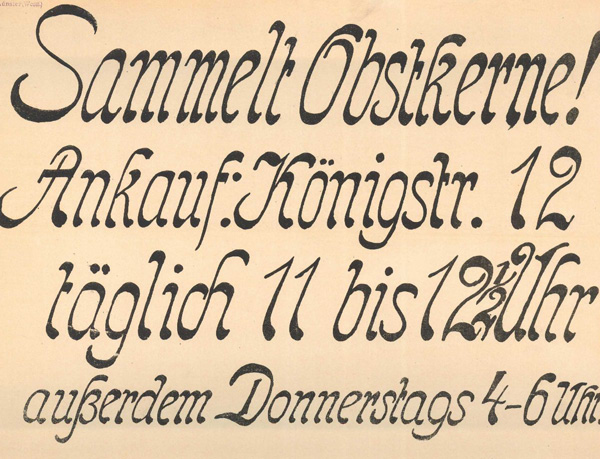 Sammelt Obstkerne!
Ankauf: Königstr. 12
täglich 11 bis 12½ Uhr
außerdem Donnerstags 4-6 Uhr.